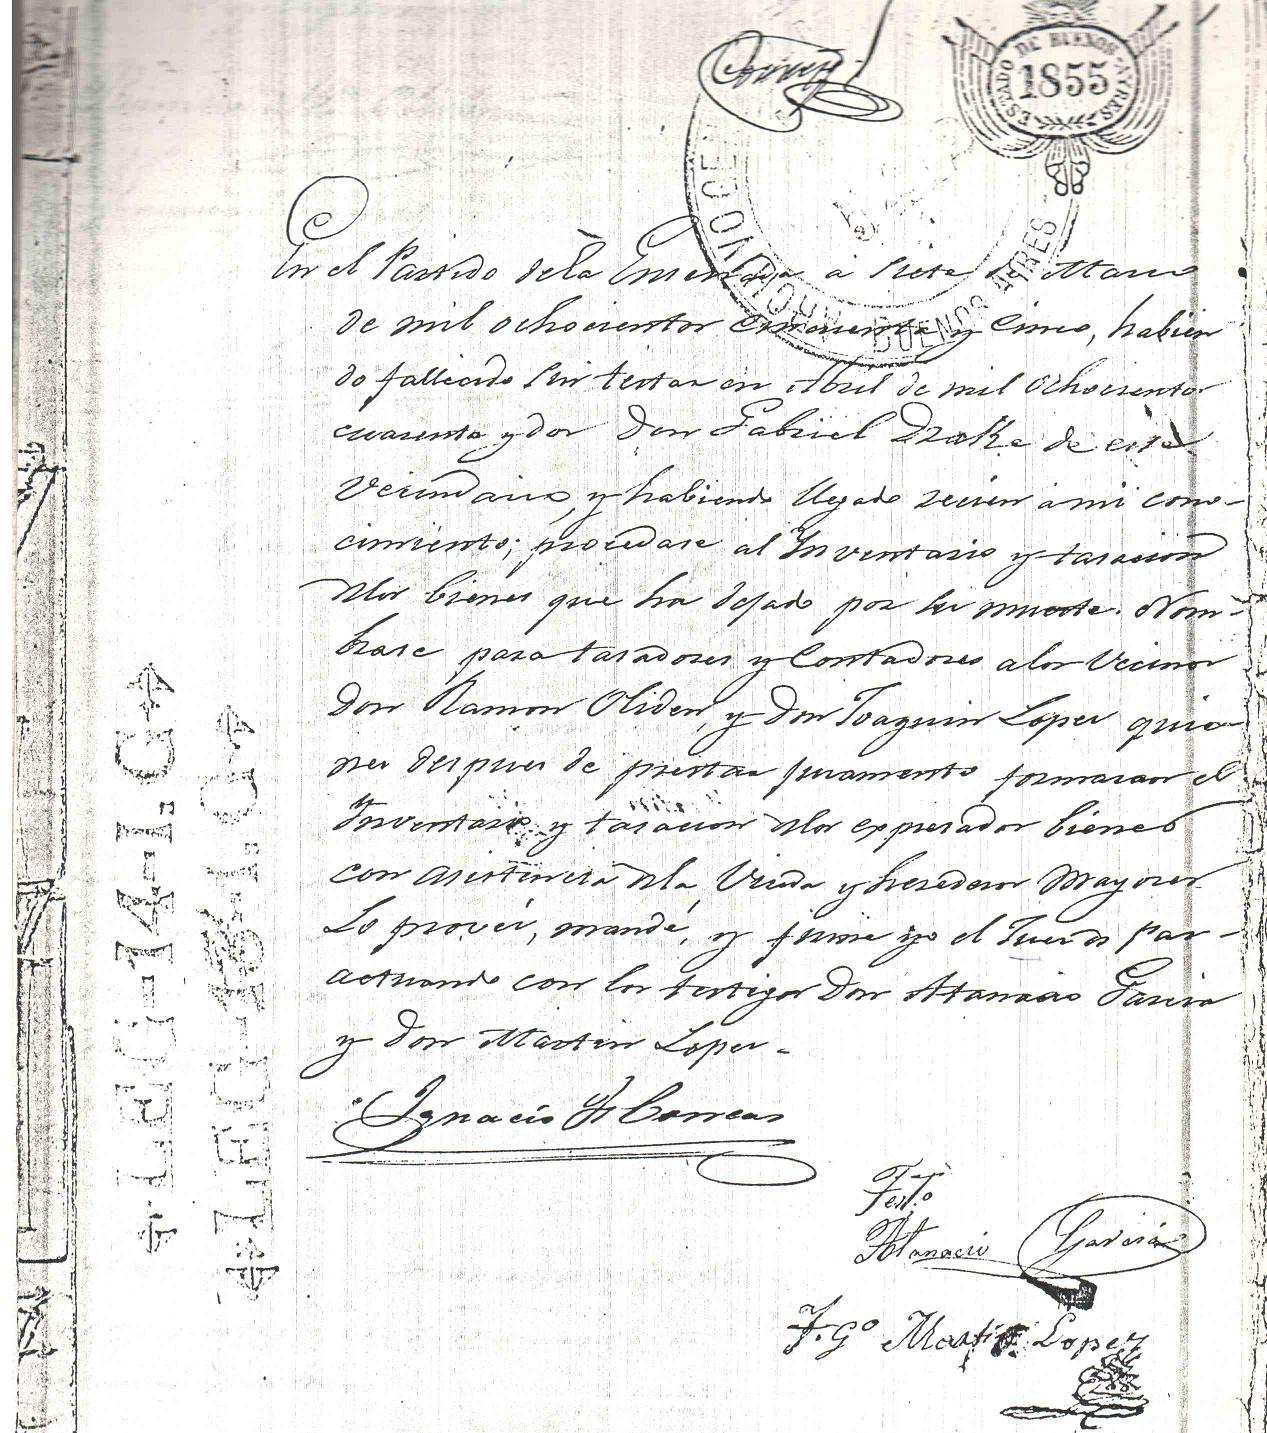 Correas
ESTADO DE BUENOS AYRES
1855
ARCHIVO DE
BUENOS AIRES
En el Partido dela Ensenada á siete de Marzo
de mil ochocientos cincuenta y cinco, habien
do fallecido sin testar en Abril de mil ochocientos
cuarenta y dos Don Gabriel Drake de este
Vecindario, y habiendo llegado recien à mi cono-
cimiento; procedase al Inventario y tasacion
delos bienes que ha dejado por su muerte. Nom-
brase para tasadores y Contadores alos Vecinos
Don Ramon Oliden, y Don Joaquin Lopez quie-
nes despues de prestar juramento formaran el
Inventario y tasacion delos expresados bienes
con asistencia dela Viuda y herederos Mayores
Lo proveí, mandé, y firmé yo el Juez de Paz-
actuando con los testigos Don Atanacio Garcia
y Don Martin Lopez.
Ignacio F Correas
Test.o
Atanacio Garcia
T.go Martin Lopez